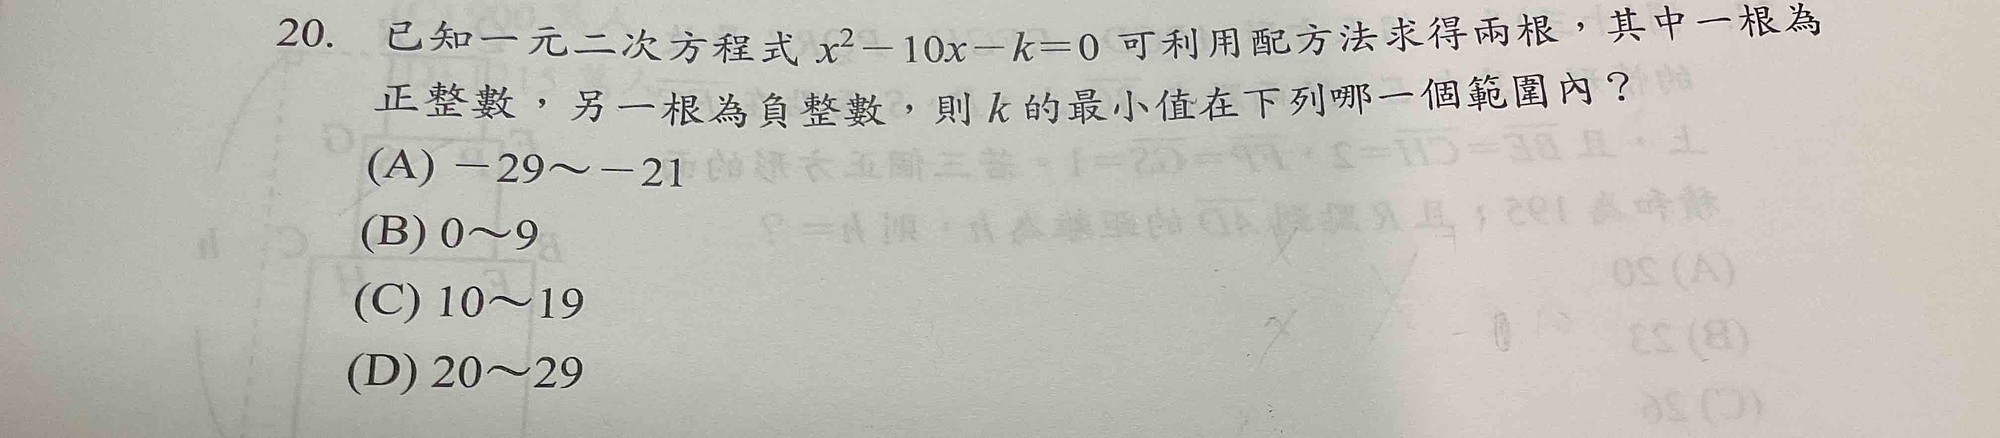 20. 已知一元二次方程式 x²－10x－k＝0 可利用配方法求得兩根，其中一根為
正整數，另一根為負整數，則 k 的最小值在下列哪一個範圍內？
(A) －29～－21
(B) 0～9
(C) 10～19
(D) 20～29